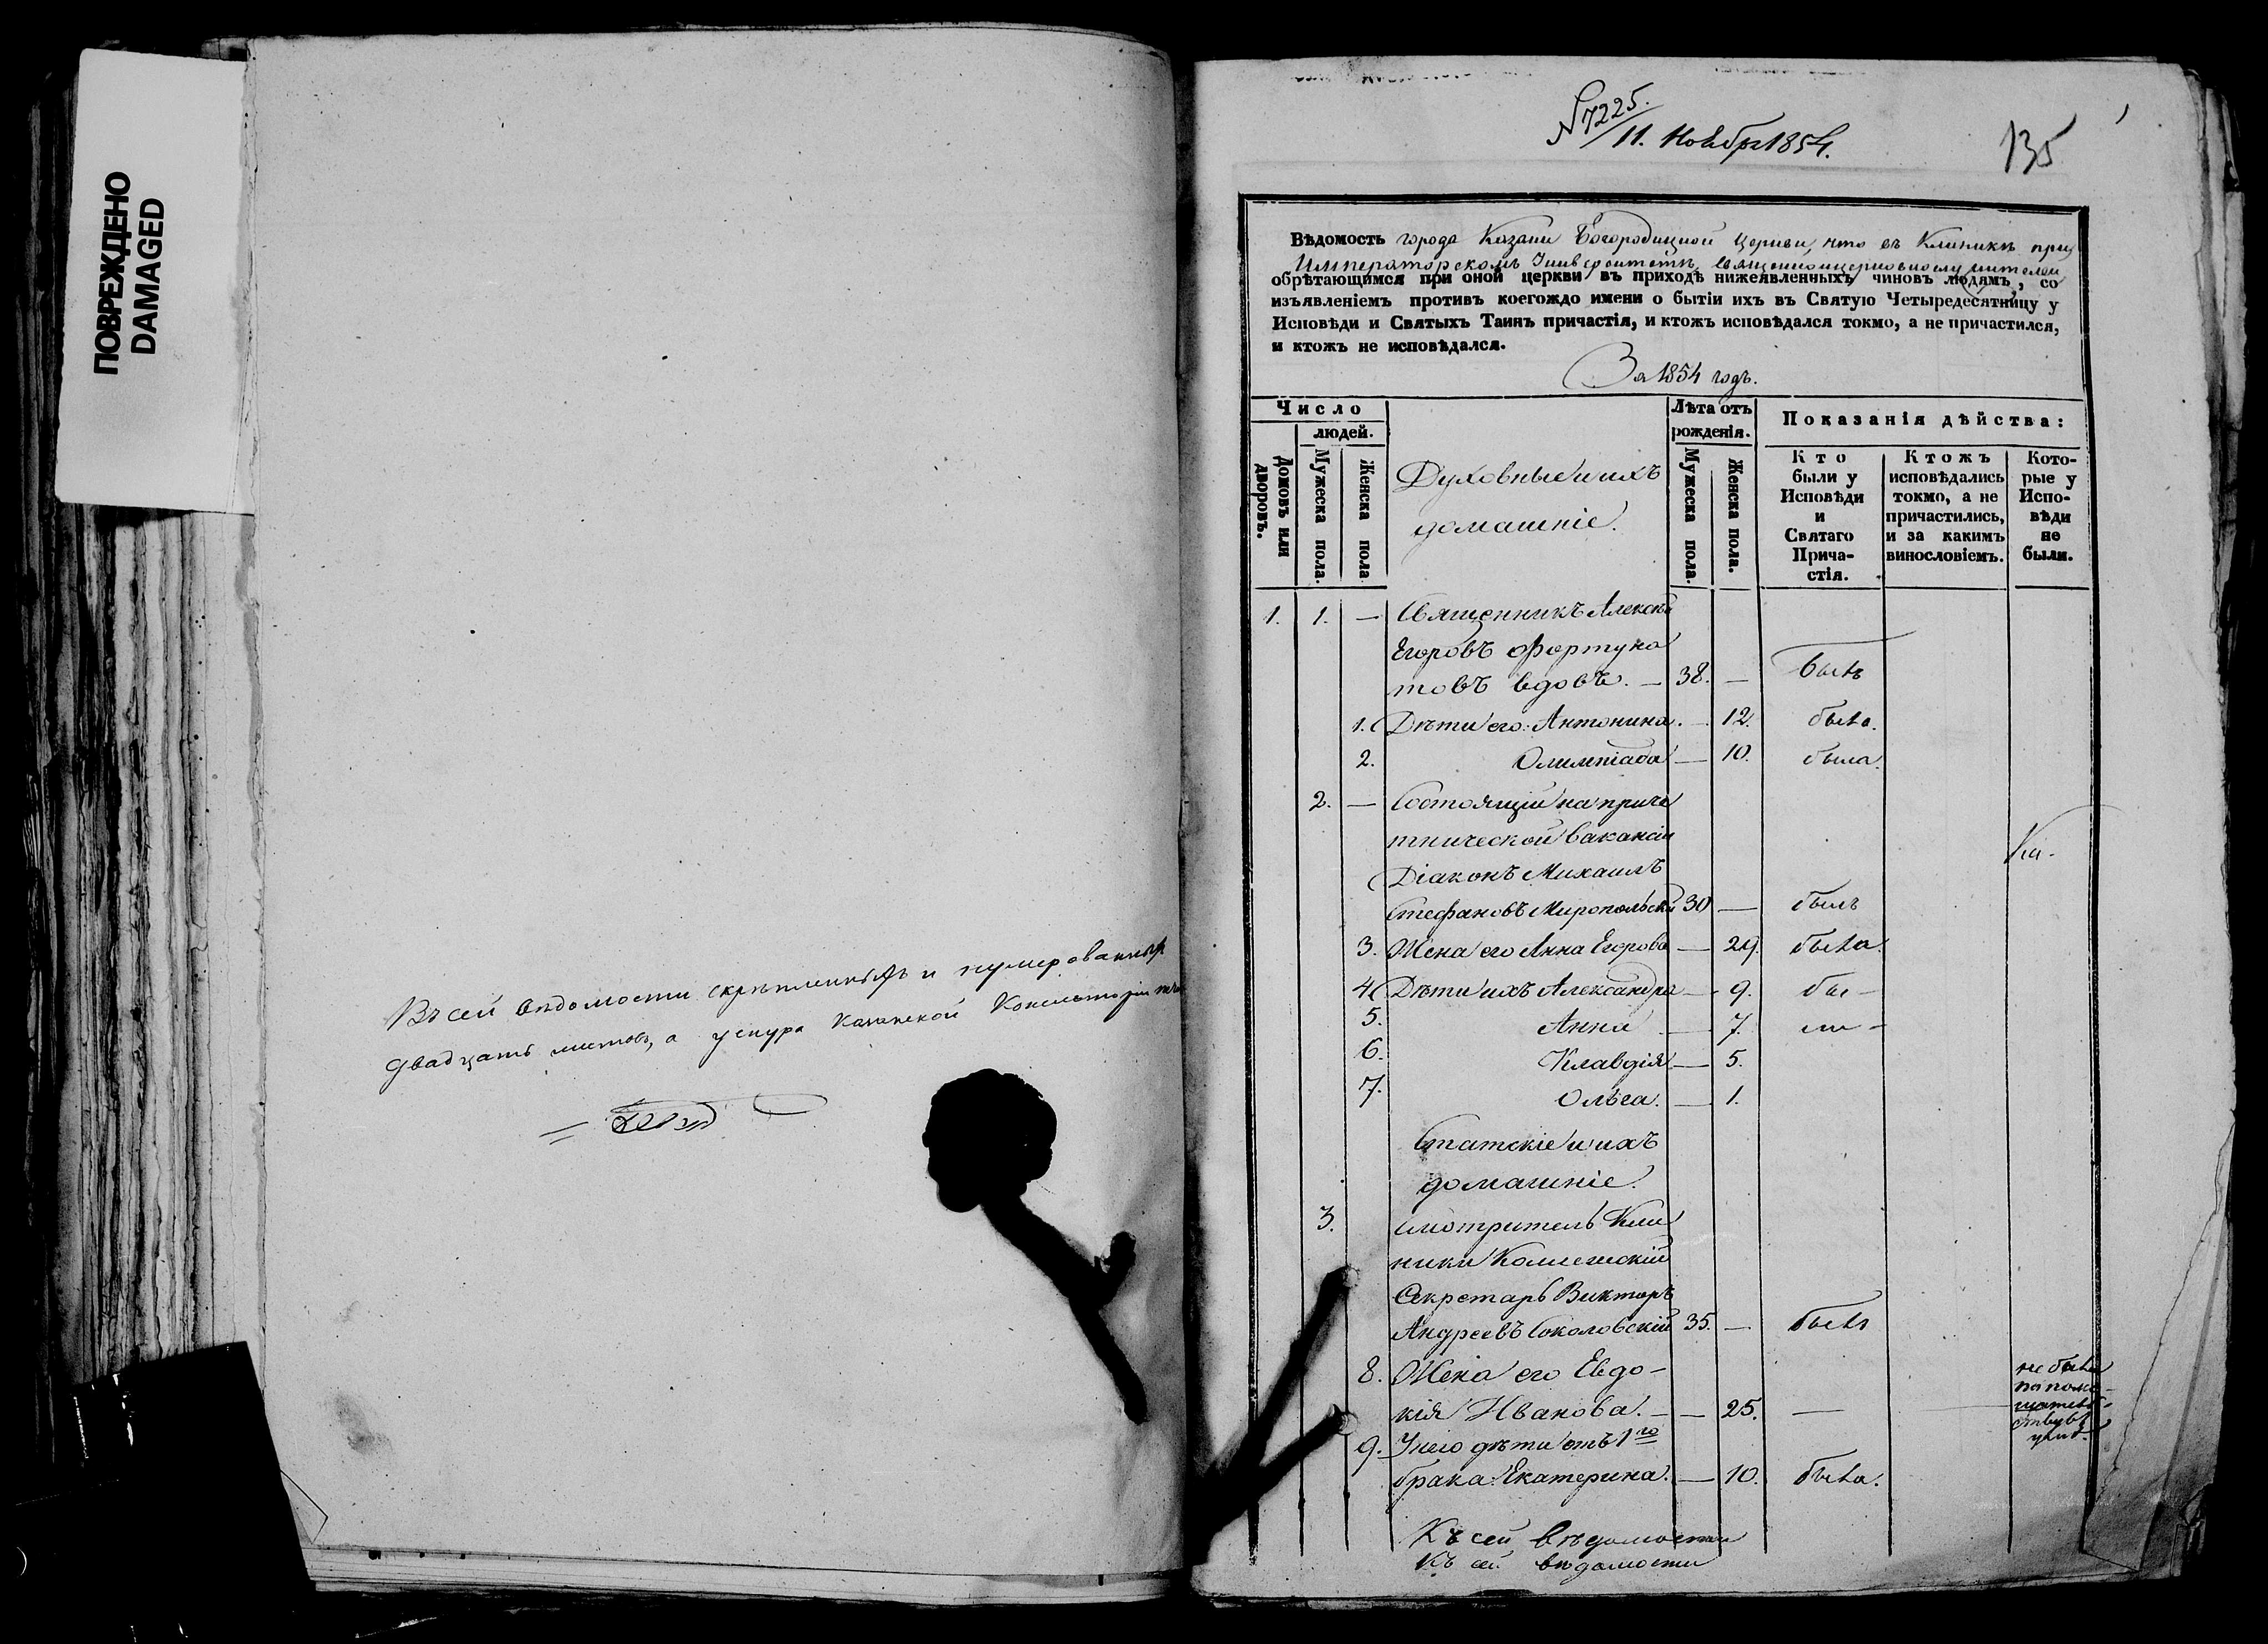 ПОВРЕЖДЕНО
DAMAGED
Въ сей ведомости скрепленныхъ и нумерованныхъ
двадцать листовъ, а
№ 7225.
11. Ноября 1854.
135
Вѣдомость города Казани Богородицкой Церкви, что въ Клиникѣ при
Императорскомъ Университетѣ, священноцерковнослужителямъ,
обрѣтающимся при оной церкви въ приходѣ нижеявленныхъ чиновъ людямъ, со
изъявленіемъ противъ коегождо имени о бытіи ихъ въ Святую Четыредесятницу у
Исповѣди и Святыхъ Таинъ причастія, и ктожъ исповѣдался токмо, а не причастился,
и ктожъ не исповѣдался.
За 1854 годъ.
Число
людей.
Домовъ или
дворовъ.
Мужеска пола.
Женска пола
Духовные и ихъ
домашніе.
Лѣта отъ
рожденія.
Мужеска пола.
Женска пола.
Показанія дѣйства:
Кто
были у
Исповѣди
и
Святаго
Прича-
стія.
Ктожъ
исповѣдались
токмо, а не
причастились,
и за какимъ
винословіемъ.
Кото-
рые у
Испо-
вѣди
не
были.
1. 1. — Священникъ Алексѣй
Егоровъ Фортуна
товъ вдовъ. — 38. — былъ
1. Дѣти его: Антонина. — 12. была.
2. Олимпіада — 10. была.
2. — Состоящій на приче
тнической вакансіи
Діаконъ Михаилъ
Стефановъ Миропольскій 30 — былъ
3. Жена его Анна Егорова — 29. была.
4. Дѣти ихъ Александра — 9. бы-
5. Анна — 7. ли -
6. Клавдія — 5.
7. Ольга. — 1.
Статскіе и ихъ
домашніе.
3. Смотритель Кли
ники Коллежскій
Секретарь Викторъ
Андреевъ Соколовскій 35. — былъ
8. Жена его Евдо-
кія Иванова. — — 25. — не была
9. У него дѣти отъ 1го
брака: Екатерина. — 10. была.
Къ сей вѣдомости
Къ сей вѣдомости